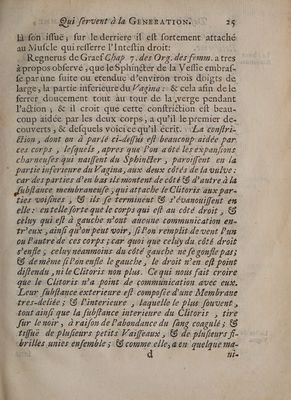 Qui servent à la GENERATION. 25
là son issuë; sur le derriere il est fortement attaché
au Muscle qui resserre l'Intestin droit:
Regnerus de Graef Chap 7. des Org. des femm. a tres
à propos observé, que le Sphincter de la Vessie embras-
sé par une suite ou etenduë d'environ trois doigts de
large, la partie inferieure du Vagina: & cela afin de le
serrer doucement tout au tour de la verge pendant
l'action, & il croit que cette constriction est beau-
coup aidée par les deux corps, a qu'il le premier de-
couverts, & desquels voici ce qu'il écrit. La constri-
ction, dont on a parlé ci-dessus est beaucoup aidée par
ces corps, lesquels, apres que l'on a ôté les expansions
charneuses qui naissent du Sphincter, paroissent en la
partie inferieure du Vagina, aux deux côtés de la vulve:
car des parties d'en bas ils montent de côté & d'autre à la
substance membraneuse, qui attache le Clitoris aux par-
ties voisines, & ils se terminent & s'évanouissent en
elle: en telle sorte que le corps qui est au côté droit, &
celuy qui est à gauche n'ont aucune communication en-
tr'eux, ainsi qu'on peut voir, si l'on remplit de vent l'un
ou l'autre de ces corps; car quoi que celuy du côté droit
s'enfle, celuy neaumoins du côté gauche ne se gonfle pas;
& de même si l'on enfle le gauche, le droit n'en est point
distendu, ni le Clitoris non plus. Ce qui nous fait croire
que le Clitoris n'a point de communication avec eux.
Leur substance exterieure est composée d'une Membrane
tres-deliée; & l'interieure, laquelle le plus souvent,
tout ainsi que la substance interieure du Clitoris, tire
sur le noir, à raison de l'abondance du sang coagulé; &
tissuë de plusieurs petits Vaisseaux, & de plusieurs fi-
brilles unies ensemble; & comme elle, a en quelque ma-
d ni-